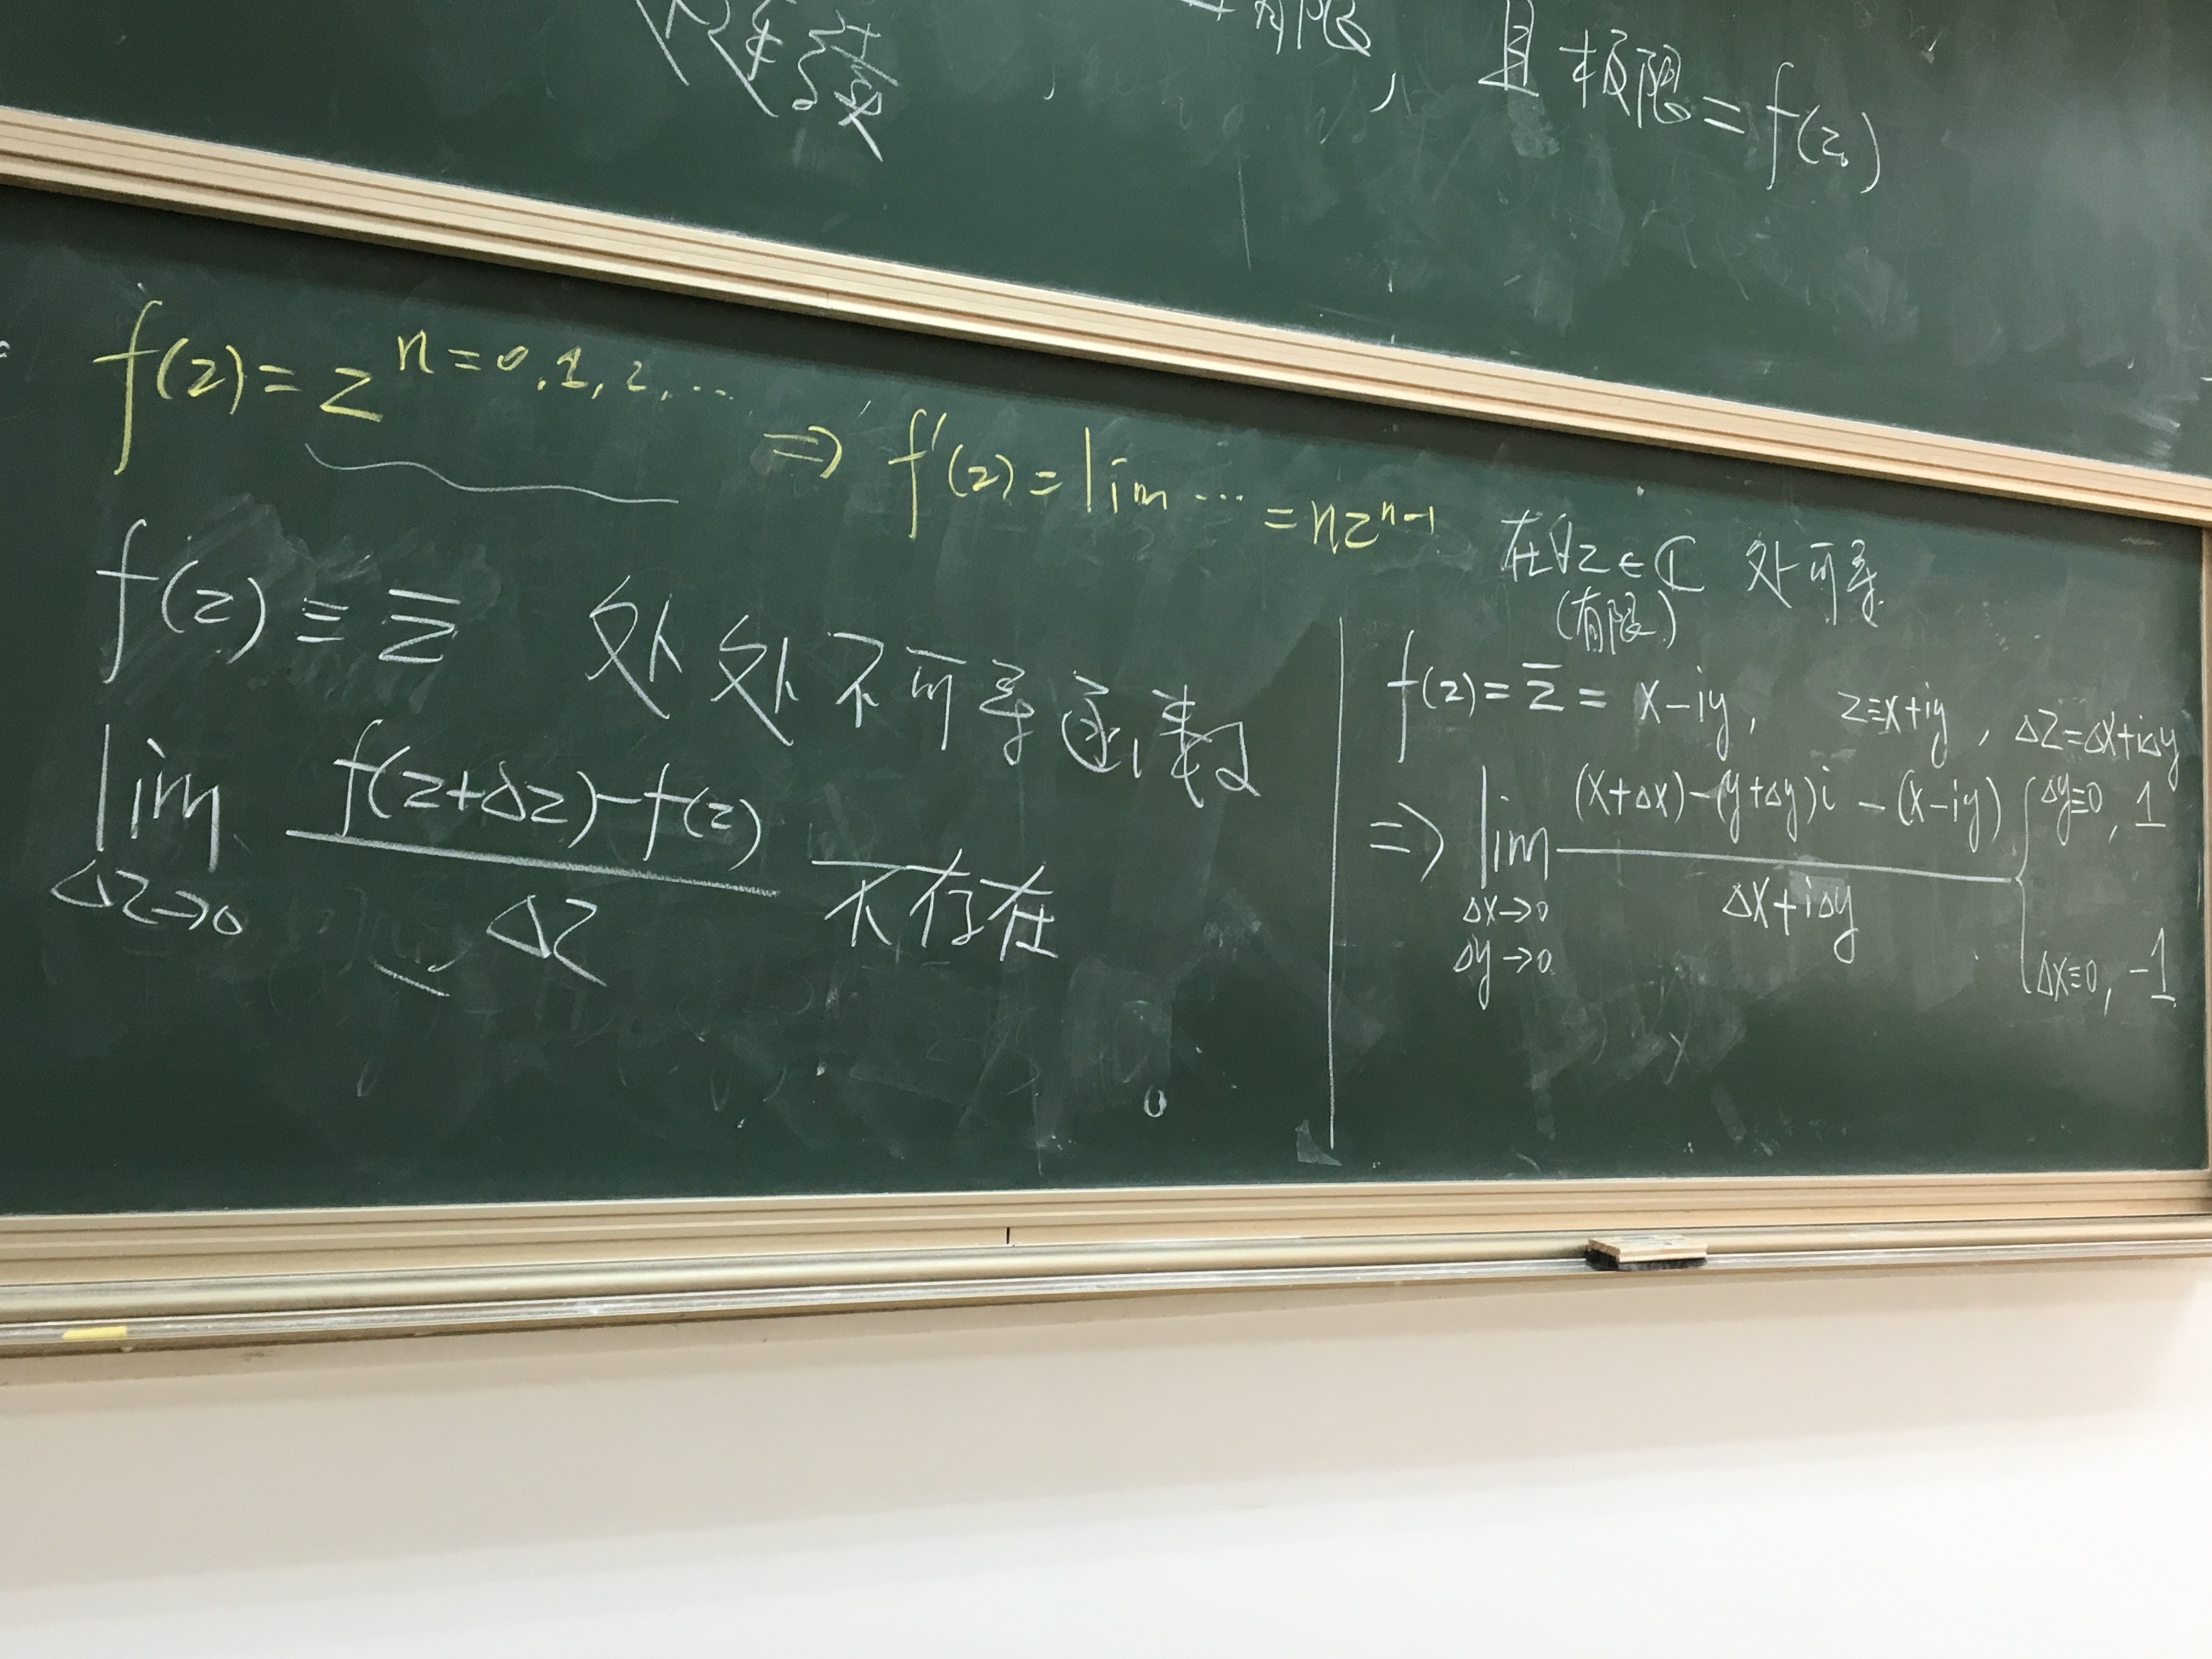 连续
有限, 且极限=f(z₀)
f(z)=z^{n=0,1,2,...} ⇒ f'(z)=lim ... =nz^{n-1}
在∀z∈ℂ 处可导
(有限)
f(z)≡z̄ 处处不可导函数
lim_{Δz→0} (f(z+Δz)-f(z))/Δz 不存在
f(z)=z̄=x-iy, z≡x+iy, Δz=Δx+iΔy
⇒ lim_{Δx→0 Δy→0} ((x+Δx)-(y+Δy)i-(x-iy))/(Δx+iΔy) { Δy≡0, 1
Δx≡0, -1